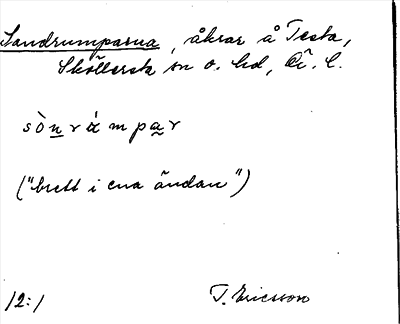 Sandrumparna, åkrar å Testa,
Sköllersta sn o. hd, Ör. l.
sònrámpar
("brett i ena ändan")
12:1 T. Ericsson